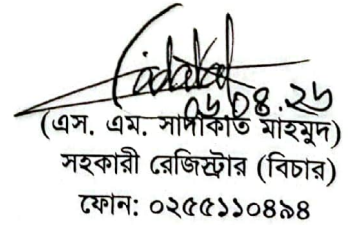 ০৬.০৪.২৬
(এস. এম. সাদাকাত মাহমুদ)
সহকারী রেজিস্ট্রার (বিচার)
ফোন: ০২৫৫১১০৪৯৪